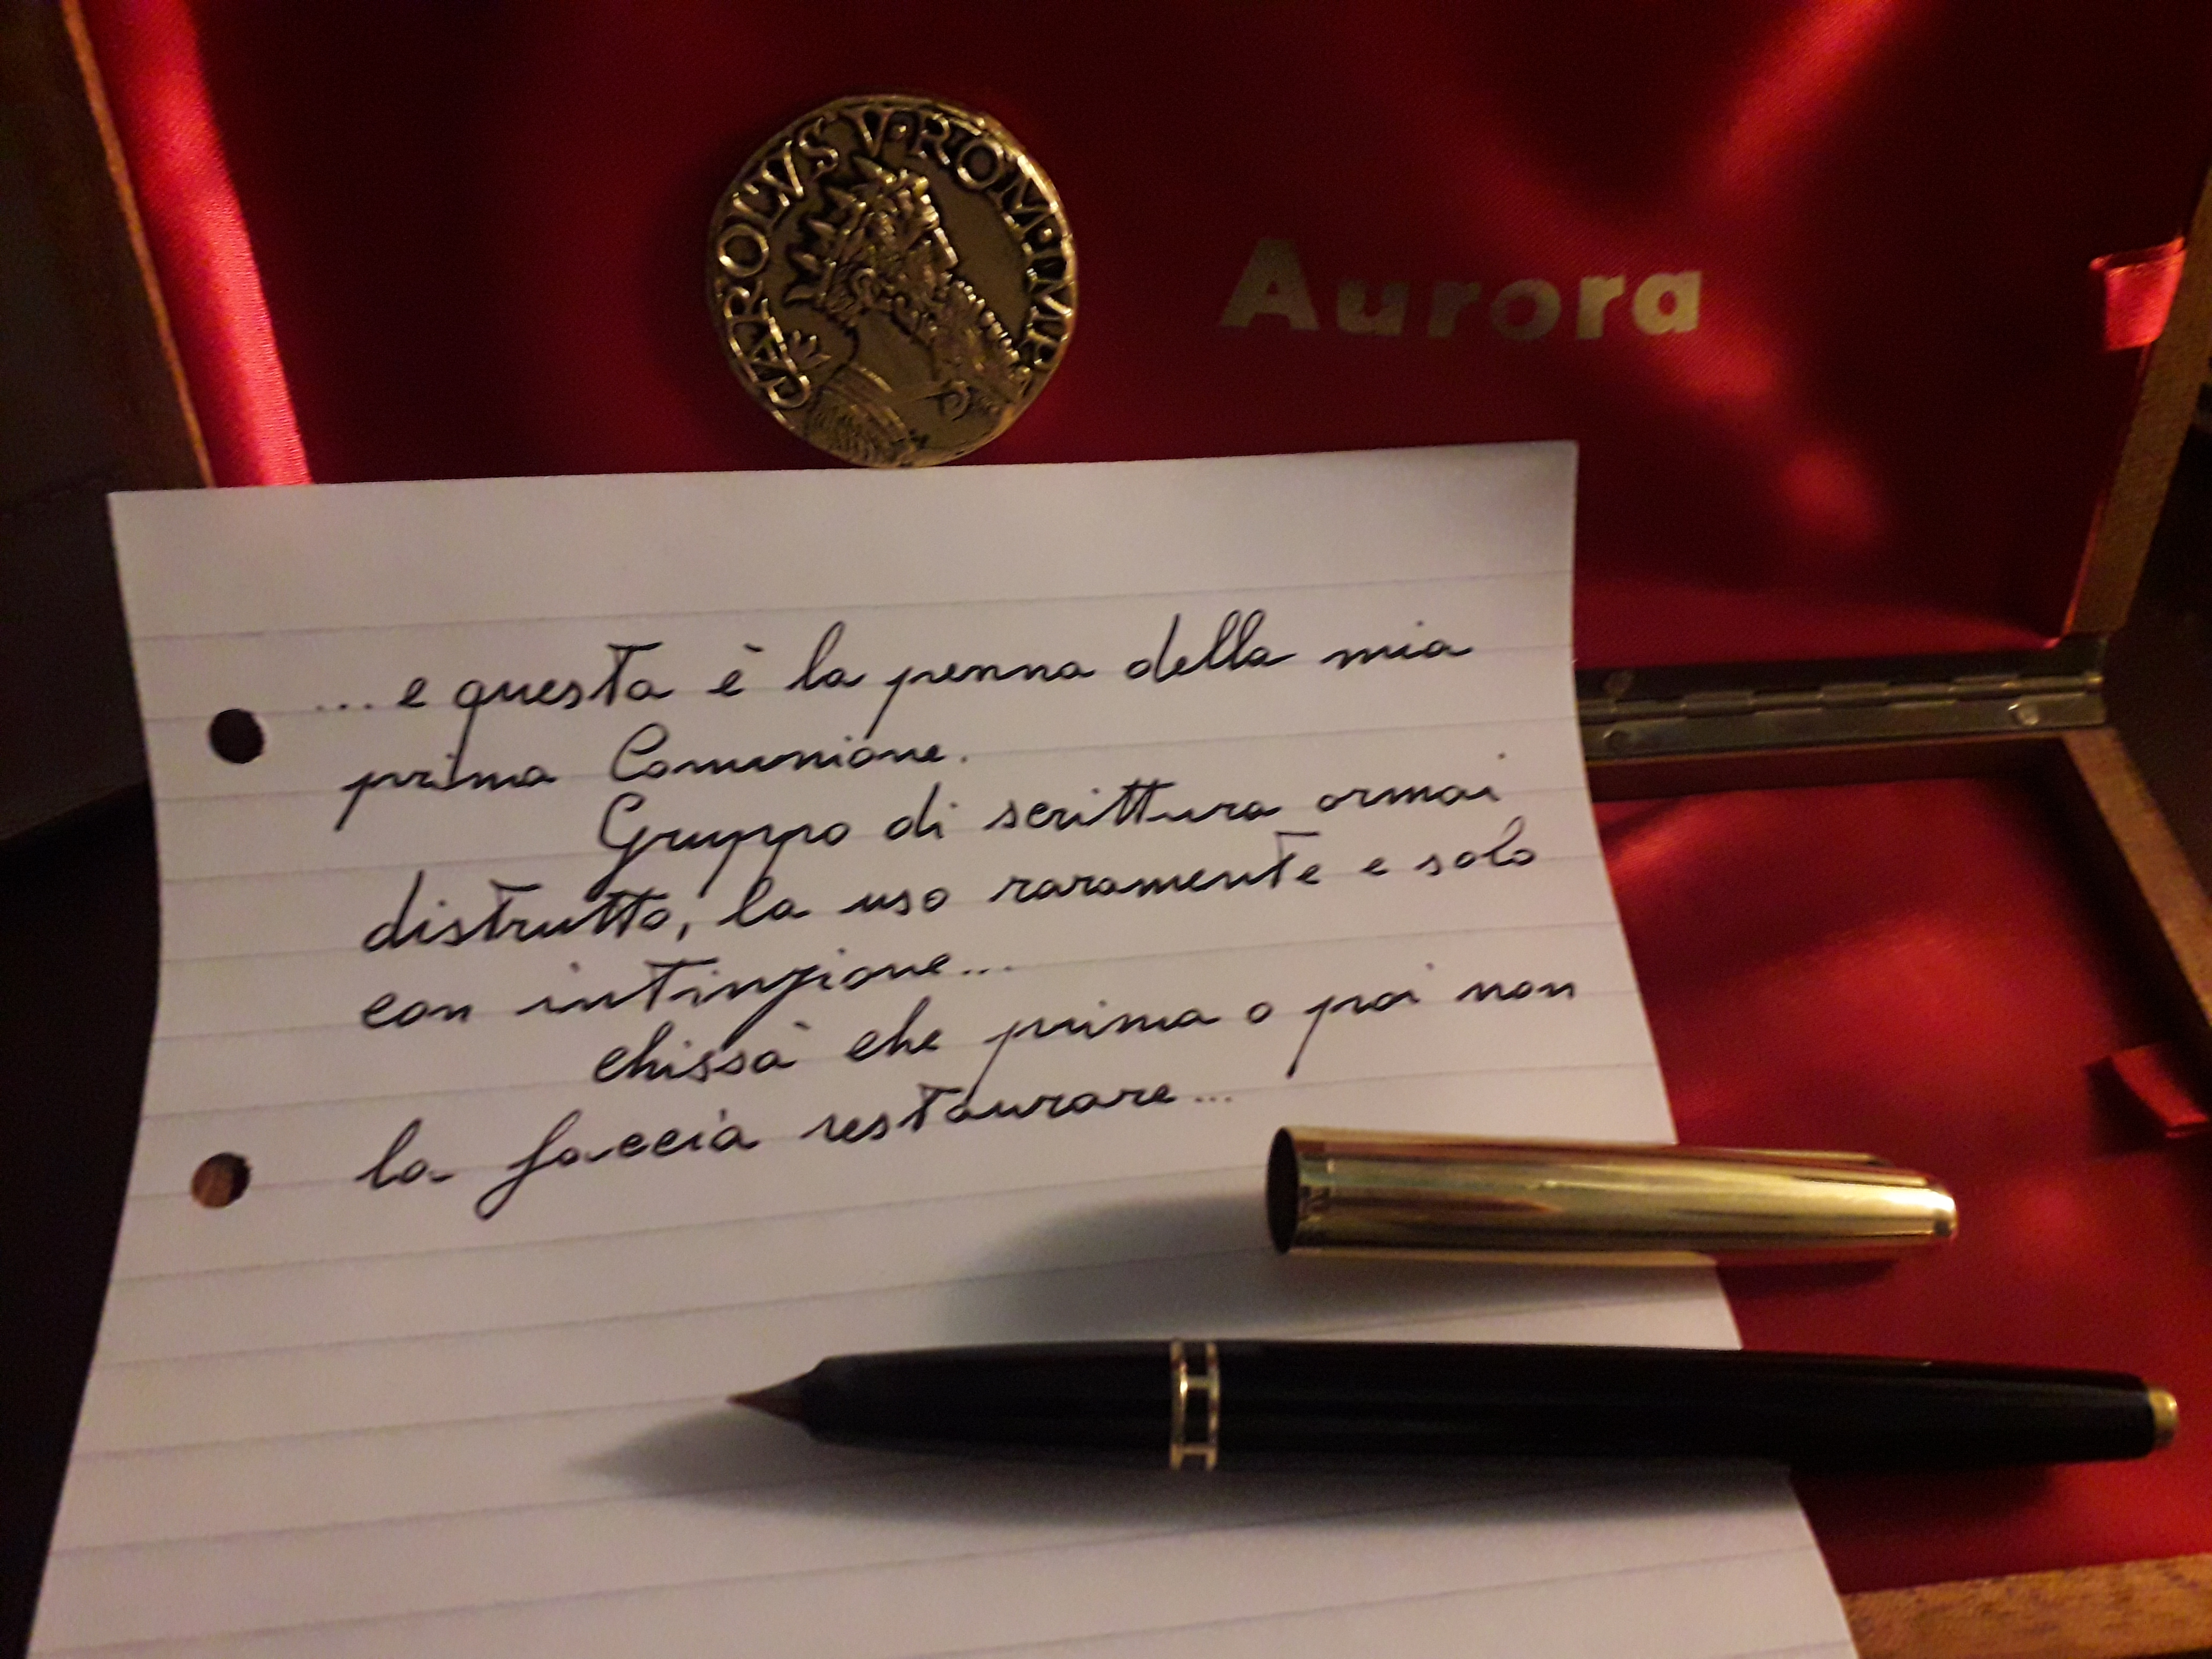 CAROLVS V·ROM·IMP
Aurora
...e questa è la penna della mia
prima Comunione.
Gruppo di scrittura ormai
distrutto, la uso raramente e solo
con intinzione...
chissà che prima o poi non
la faccia restaurare...